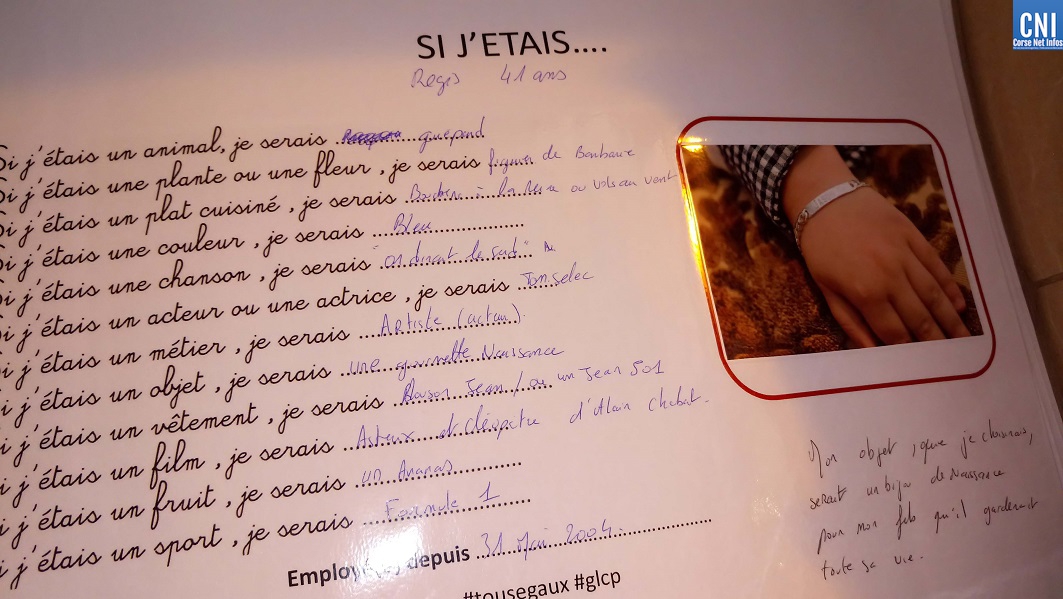 CNI
Corse Net Infos
SI J'ETAIS....
Regis 41 ans
Si j'étais un animal, je serais guépard
Si j'étais une plante ou une fleur, je serais figuier de Barbarie
Si j'étais un plat cuisiné, je serais à la reine ou vols au vent
Si j'étais une couleur, je serais Bleu
Si j'étais une chanson, je serais "on dirait le sud"
Si j'étais un acteur ou une actrice, je serais Tom selec
Si j'étais un métier, je serais Artiste (acteur)
Si j'étais un objet, je serais une gourmette Naissance
Si j'étais un vêtement, je serais Blouson Jean / ou un Jean 501
Si j'étais un film, je serais et Cléopatre d'Alain Chabat.
Si j'étais un fruit, je serais un Ananas
Si j'étais un sport, je serais Formule 1
Employé(e) depuis 31 Mai 2004
#tousegaux #glcp
Mon objet, que je choisirais,
serait un bijou de Naissance
pour mon fils qu'il garderait
toute sa vie.